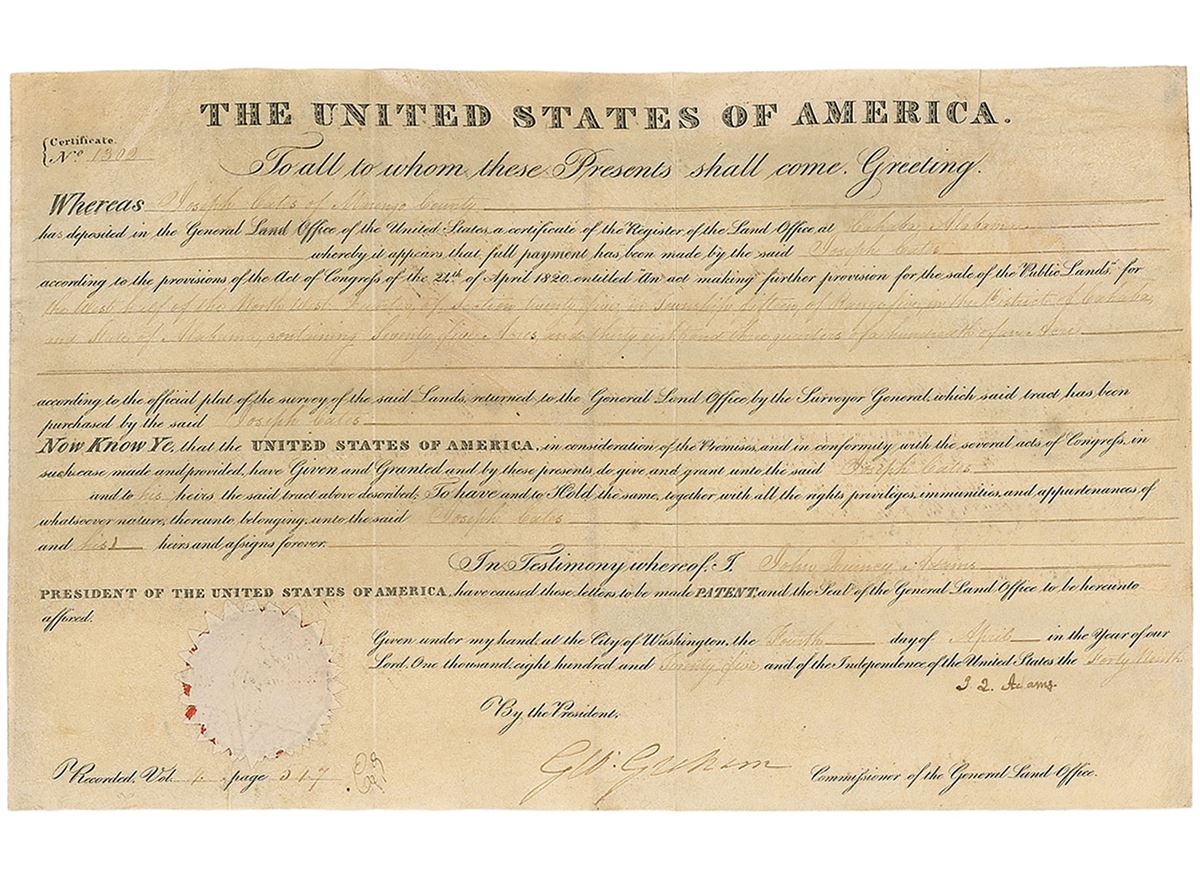 THE UNITED STATES OF AMERICA.
Certificate.
No. 1302
To all to whom these Presents shall come, Greeting.
Whereas Joseph Cates of Marengo County
has deposited in the General Land Office of the United States, a certificate of the Register of the Land Office at Cahaba Alabama
whereby it appears that full payment has been made by the said Joseph Cates
according to the provisions of the Act of Congress of the 24th of April 1820, entitled "An act making further provision for the sale of the Public Lands," for
the West half of the North West quarter of Section twenty four in Township fifteen of Range five in the District of Cahaba,
and State of Alabama, containing Seventy five Acres and thirty eight and three quarters of a hundredth of an Acre
according to the official plat of the survey of the said Lands, returned to the General Land Office by the Surveyor General, which said tract has been
purchased by the said Joseph Cates
Now Know Ye, that the UNITED STATES OF AMERICA, in consideration of the Premises, and in conformity with the several acts of Congress, in
such case made and provided, have Given and Granted and by these presents do give and grant unto the said Joseph Cates
and to his heirs the said tract above described; To have and to Hold the same, together with all the rights privileges, immunities, and appurtenances of
whatsoever nature, thereunto belonging, unto the said Joseph Cates
and his heirs and assigns forever.
In Testimony whereof, I, John Quincy Adams
PRESIDENT OF THE UNITED STATES OF AMERICA, have caused these letters to be made PATENT, and the Seal of the General Land Office to be hereunto
affixed.
Given under my hand, at the City of Washington, the Fourth day of April in the Year of our
Lord, One thousand, eight hundred and Twenty five and of the Independence of the United States the Forty Ninth
J. Q. Adams.
By the President,
Geo. Graham Commissioner of the General Land Office.
Recorded, Vol. 1. page 317